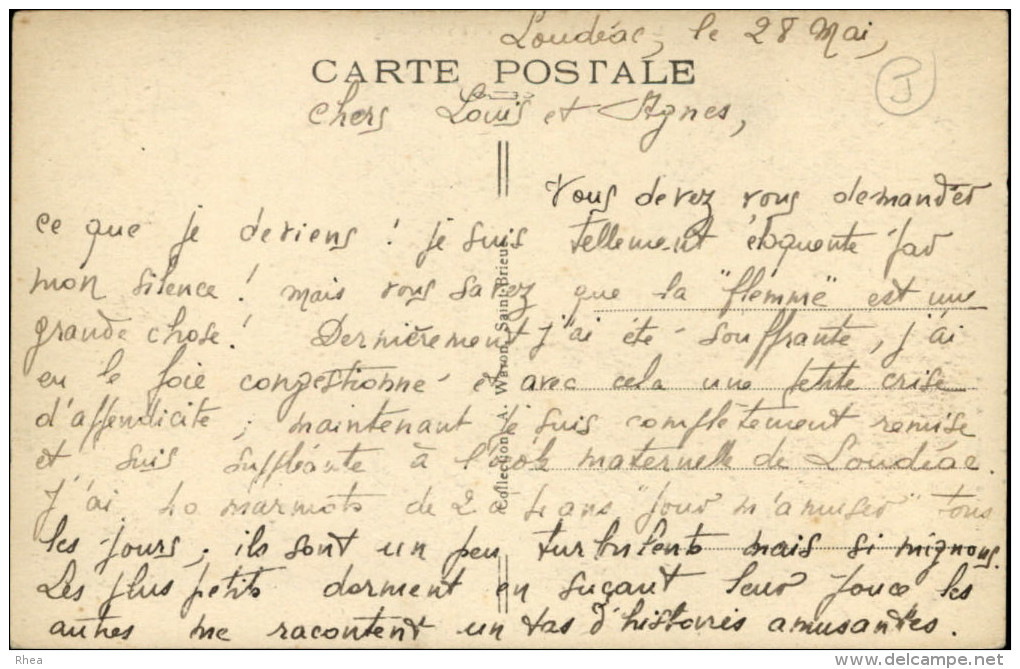 Loudéac, le 28 Mai,
CARTE POSTALE
J
Chers Louis et Agnes,
Vous devez vous demander
ce que je deviens ! je suis tellement éloquente par
mon silence ! mais vous savez que la "flemme" est une
grande chose ! Dernièrement j'ai été souffrante, j'ai
eu le foie congestionné et avec cela une petite crise
d'appendicite ; maintenant je suis complètement remise
et suis suppléante à l'école maternelle de Loudéac.
J'ai 40 marmots de 2 à 4 ans "pour m'amuser" tous
les jours ; ils sont un peu turbulents mais si mignons.
Les plus petits dorment en suçant leur pouce les
autres me racontent un tas d'histoires amusantes.
Collection A. Waron, Saint-Brieuc
Rhea
http://www.delcampe.net